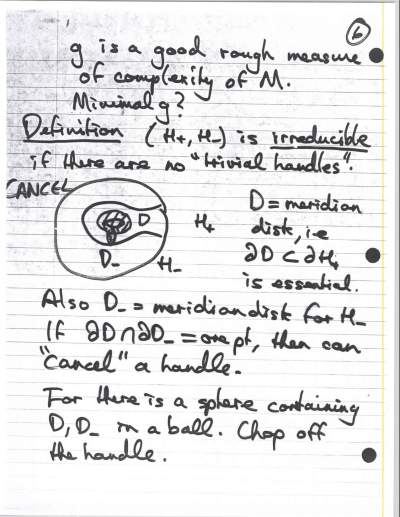 6
g is a good rough measure
of complexity of M.
Minimal g?
Definition (H+, H-) is irreducible
if there are no "trivial handles".
CANCEL
D
H+
D-
H-
D = meridian
disk, i.e
∂D ⊂ ∂H+
is essential.
Also D- = meridian disk for H-
If ∂D ∩ ∂D- = one pt, then can
"cancel" a handle.
For there is a sphere containing
D, D- in a ball. Chop off
the handle.